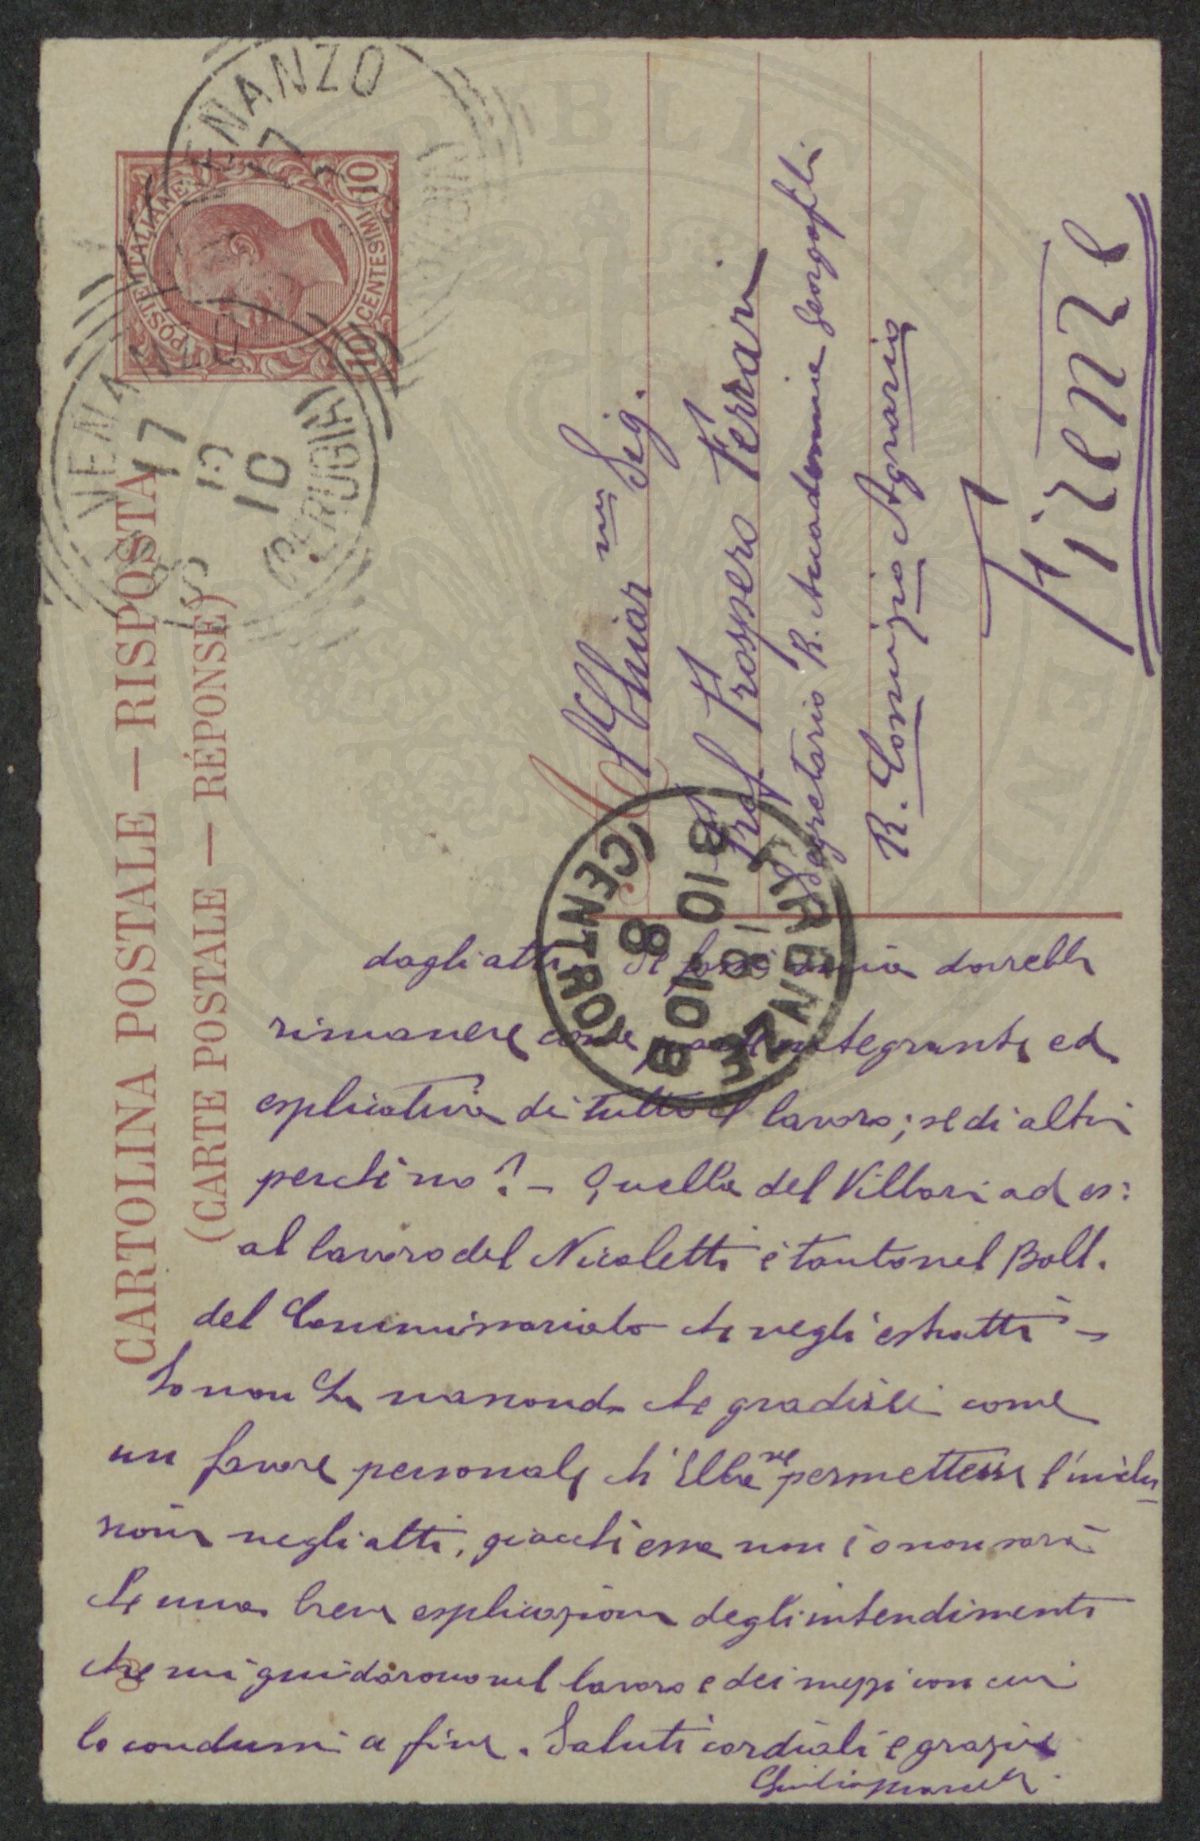 CARTOLINA POSTALE — RISPOSTA
(CARTE POSTALE — RÉPONSE)
POSTE ITALIANE
10 CENTESIMI 10
VENANZO
17
VENANZO
17
10
(PERUGIA)
Chiar mo Sig.
Prof Prospero Ferrari
Segretario R. Accademia Georgofili
R. Comizio Agrario
Firenze
FIRENZE
18·10
8
(CENTRO)
dagli atti se mia dovrebbe
rimanere come parte integrante ed
esplicativa di tutto il lavoro; se di altri
perchè no? – Quella del Villari ad es:
al lavoro del Nicoletti è tanto nel Boll.
del Commissariato che negli estratti –
Io non Le nascondo che gradirei come
un favore personale ch'Ella ne permettesse l'inclu
sione negli atti, giacchè essa non è o non sarà
che una breve esplicazione degli intendimenti
che mi guidarono nel lavoro e dei mezzi con cui
lo condussi a fine. Saluti cordiali e grazie